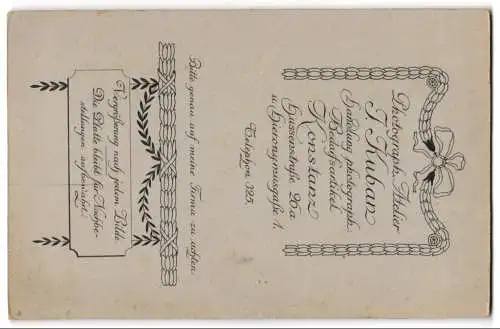 Photograph. Atelier
J. Kuban
Handlung photograph.
Bedarfsartikel
Konstanz
Hussenstraße 26a
u. Hieronymusgaße 1.
Telephon 325.
Bitte genau auf meine Firma zu achten
Vergrößerung nach jedem Bilde
Die Platte bleibt für Nachbe-
stellungen aufbewahrt.